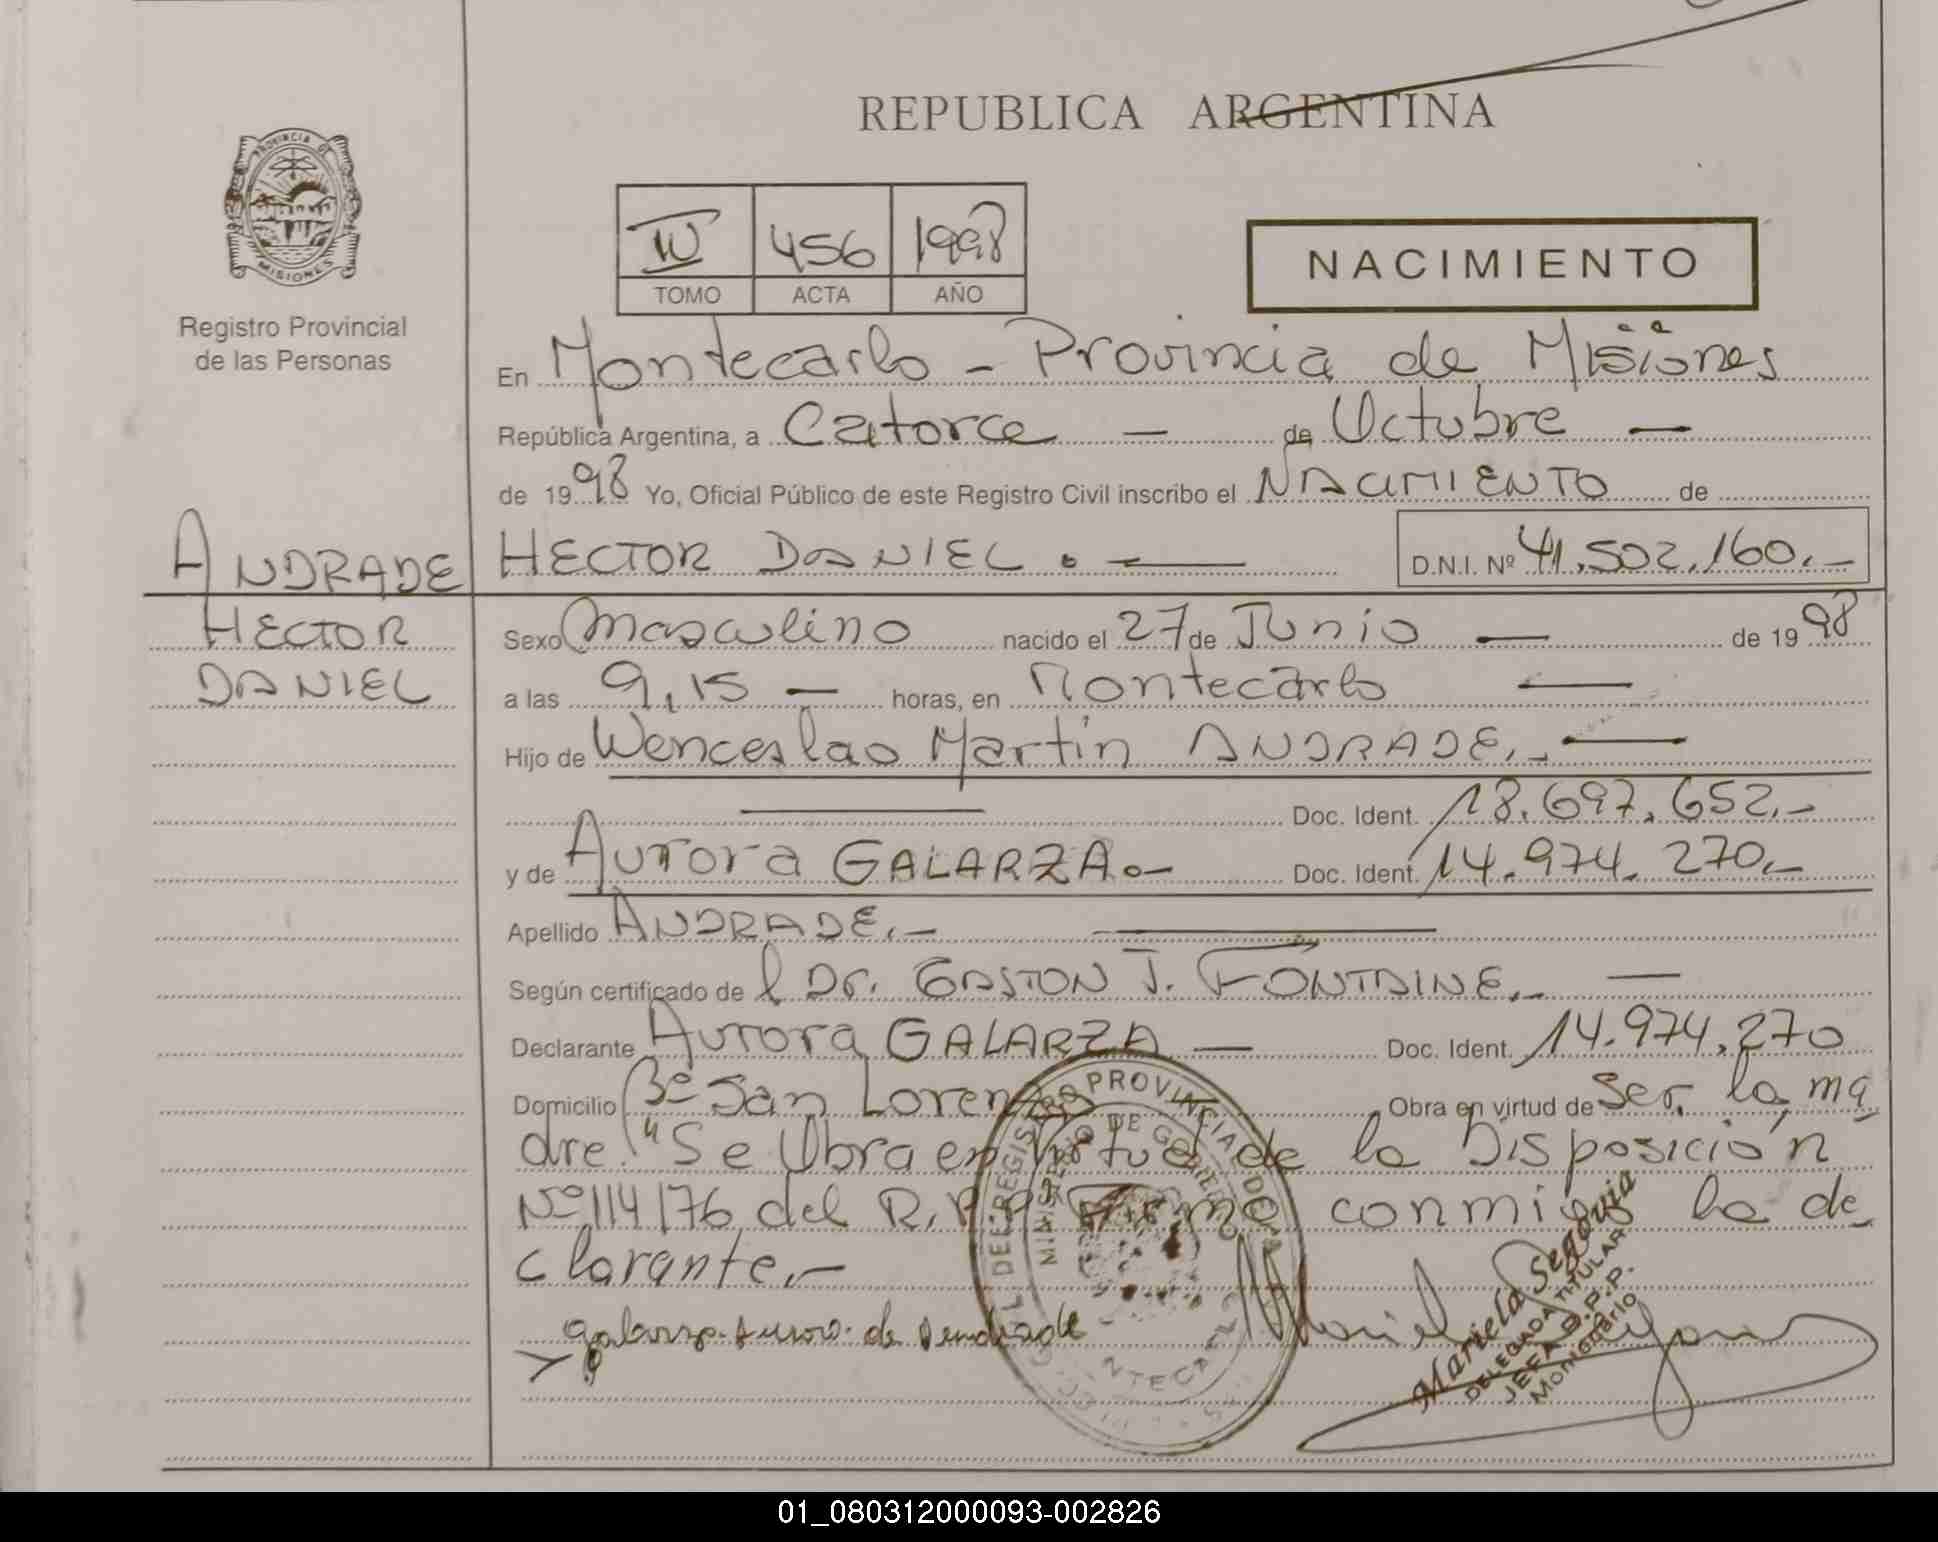 REPUBLICA ARGENTINA
PROVINCIA DE
MISIONES
Registro Provincial
de las Personas
IV 456 1998
TOMO ACTA AÑO
NACIMIENTO
En Montecarlo - Provincia de Misiones
República Argentina, a Catorce — de Octubre —
de 1998 Yo, Oficial Público de este Registro Civil inscribo el NACIMIENTO de
ANDRADE HECTOR DANIEL . — D.N.I. Nº 41.502.160.-
HECTOR
DANIEL
Sexo Masculino nacido el 27 de Junio — de 1998
a las 9,15 — horas, en Montecarlo —
Hijo de Wenceslao Martín ANDRADE.- —
— Doc. Ident. 18.697.652.-
y de Aurora GALARZA.- Doc. Ident. 14.974.270.-
Apellido ANDRADE.- —
Según certificado de l Dr. GASTON J. FONTAINE.- —
Declarante Aurora GALARZA — Doc. Ident. 14.974.270
Domicilio Bº San Lorenzo Obra en virtud de ser la ma
dre. "Se Obra en virtud de la Disposición
Nº 114/76 del R.P.P. Firma conmigo la de
clarante.-
galarza Aurora de Andrade
REGISTRO PROVINCIAL DE LAS
MINISTERIO DE GOBIERNO
Mariela Segovia
DELEGADA TITULAR
JEFA R.P.P.
Montecarlo
01_080312000093-002826